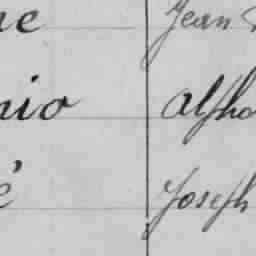 ne Jean
nio Alpho
é Joseph